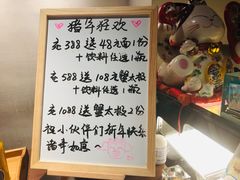 猪年狂欢
充388送48元面1份
+饮料任选1瓶
充588送108元蟹太极
+饮料任选1瓶
充1088送蟹太极2份
祝小伙伴们新年快乐
诸事如意~